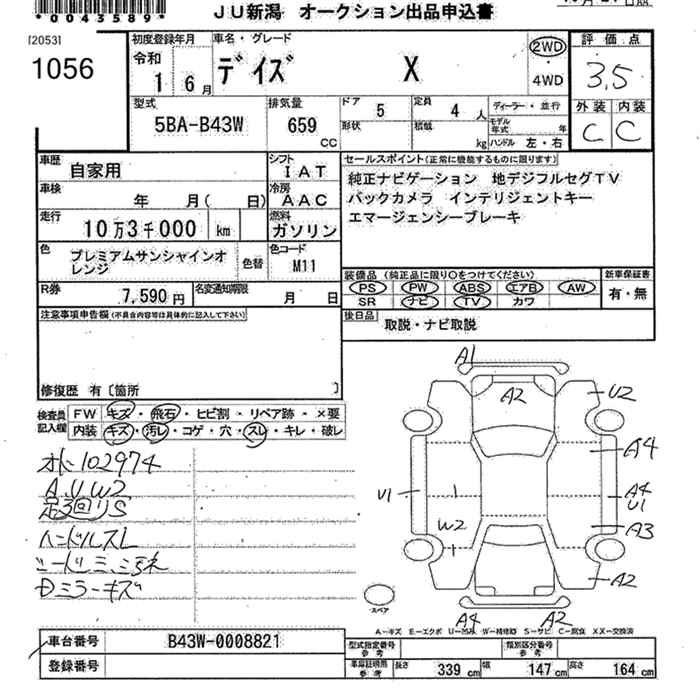 *0043589*
JU新潟 オークション出品申込書
[2053]
1056
初度登録年月
令和
1 6月
車名・グレード
デイズ X
2WD
・
4WD
評価点
3.5
外装 内装
C C
型式
5BA-B43W
排気量
659
CC
ドア
5
定員
4 人
形状
積載
kg
ディーラー・並行
モデル年式 年
ハンドル 左・右
車歴
自家用
シフト
IAT
車検
年 月( 日)
冷房
AAC
走行
10万3千000 km
燃料
ガソリン
色
プレミアムサンシャインオレンジ
色替
色コード
M11
R券
7,590 円
名変通知期限
月 日
セールスポイント(正常に機能するものに限ります)
純正ナビゲーション 地デジフルセグTV
バックカメラ インテリジェントキー
エマージェンシーブレーキ
装備品(純正品に限り○をつけてください)
PS PW ABS エアB AW
SR ナビ TV カワ
新車保証書
有・無
後日品
取説・ナビ取説
注意事項申告欄(不具合内容等は具体的に記入して下さい)
修復歴 有〔箇所 〕
検査員記入欄
FW キズ・飛石・ヒビ割・リペア跡・×要
内装 キズ・汚レ・コゲ・穴・スレ・キレ・破レ
102974
A.U.W2
足回りS
ハンドルスレ
Dミラーキズ
A1
A2
U2
A4
U1
A4
U1
W2
A3
A2
A4
A2
スペア
A-キズ E-エクボ U-凹み W-補修跡 S-サビ C-腐食 XX-交換済
車台番号
B43W-0008821
登録番号
型式指定番号
参考
類別区分番号
参考
車庫証明用
参考
長さ 339 cm 幅 147 cm 高さ 164 cm